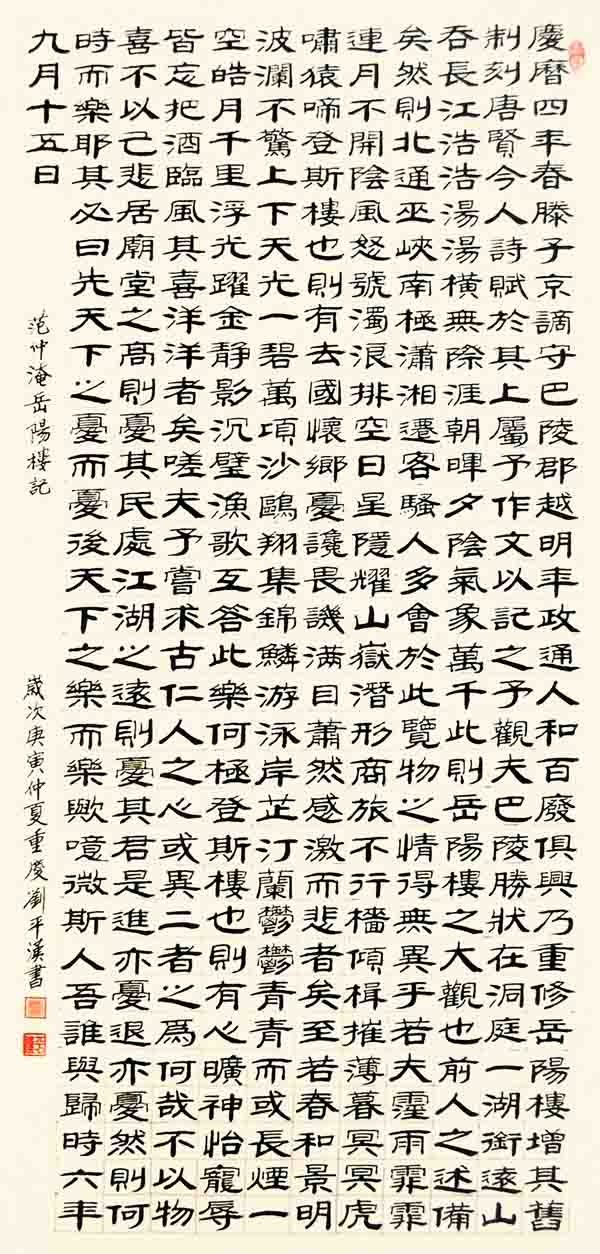 慶曆四年春滕子京謫守巴陵郡越明年政通人和百廢俱興乃重修岳陽樓增其舊
制刻唐賢今人詩賦於其上屬予作文以記之予觀夫巴陵勝狀在洞庭一湖銜遠山
吞長江浩浩湯湯橫無際涯朝暉夕陰氣象萬千此則岳陽樓之大觀也前人之述備
矣然則北通巫峽南極瀟湘遷客騷人多會於此覽物之情得無異乎若夫霪雨霏霏
連月不開陰風怒號濁浪排空日星隱耀山嶽潛形商旅不行檣傾楫摧薄暮冥冥虎
嘯猿啼登斯樓也則有去國懷鄉憂讒畏譏滿目蕭然感激而悲者矣至若春和景明
波瀾不驚上下天光一碧萬頃沙鷗翔集錦鱗游泳岸芷汀蘭鬱鬱青青而或長煙一
空皓月千里浮光躍金靜影沉璧漁歌互答此樂何極登斯樓也則有心曠神怡寵辱
皆忘把酒臨風其喜洋洋者矣嗟夫予嘗求古仁人之心或異二者之為何哉不以物
喜不以己悲居廟堂之高則憂其民處江湖之遠則憂其君是進亦憂退亦憂然則何
時而樂耶其必曰先天下之憂而憂後天下之樂而樂歟噫微斯人吾誰與歸時六年
九月十五日
范仲淹岳陽樓記
歲次庚寅仲夏重慶劉平漢書